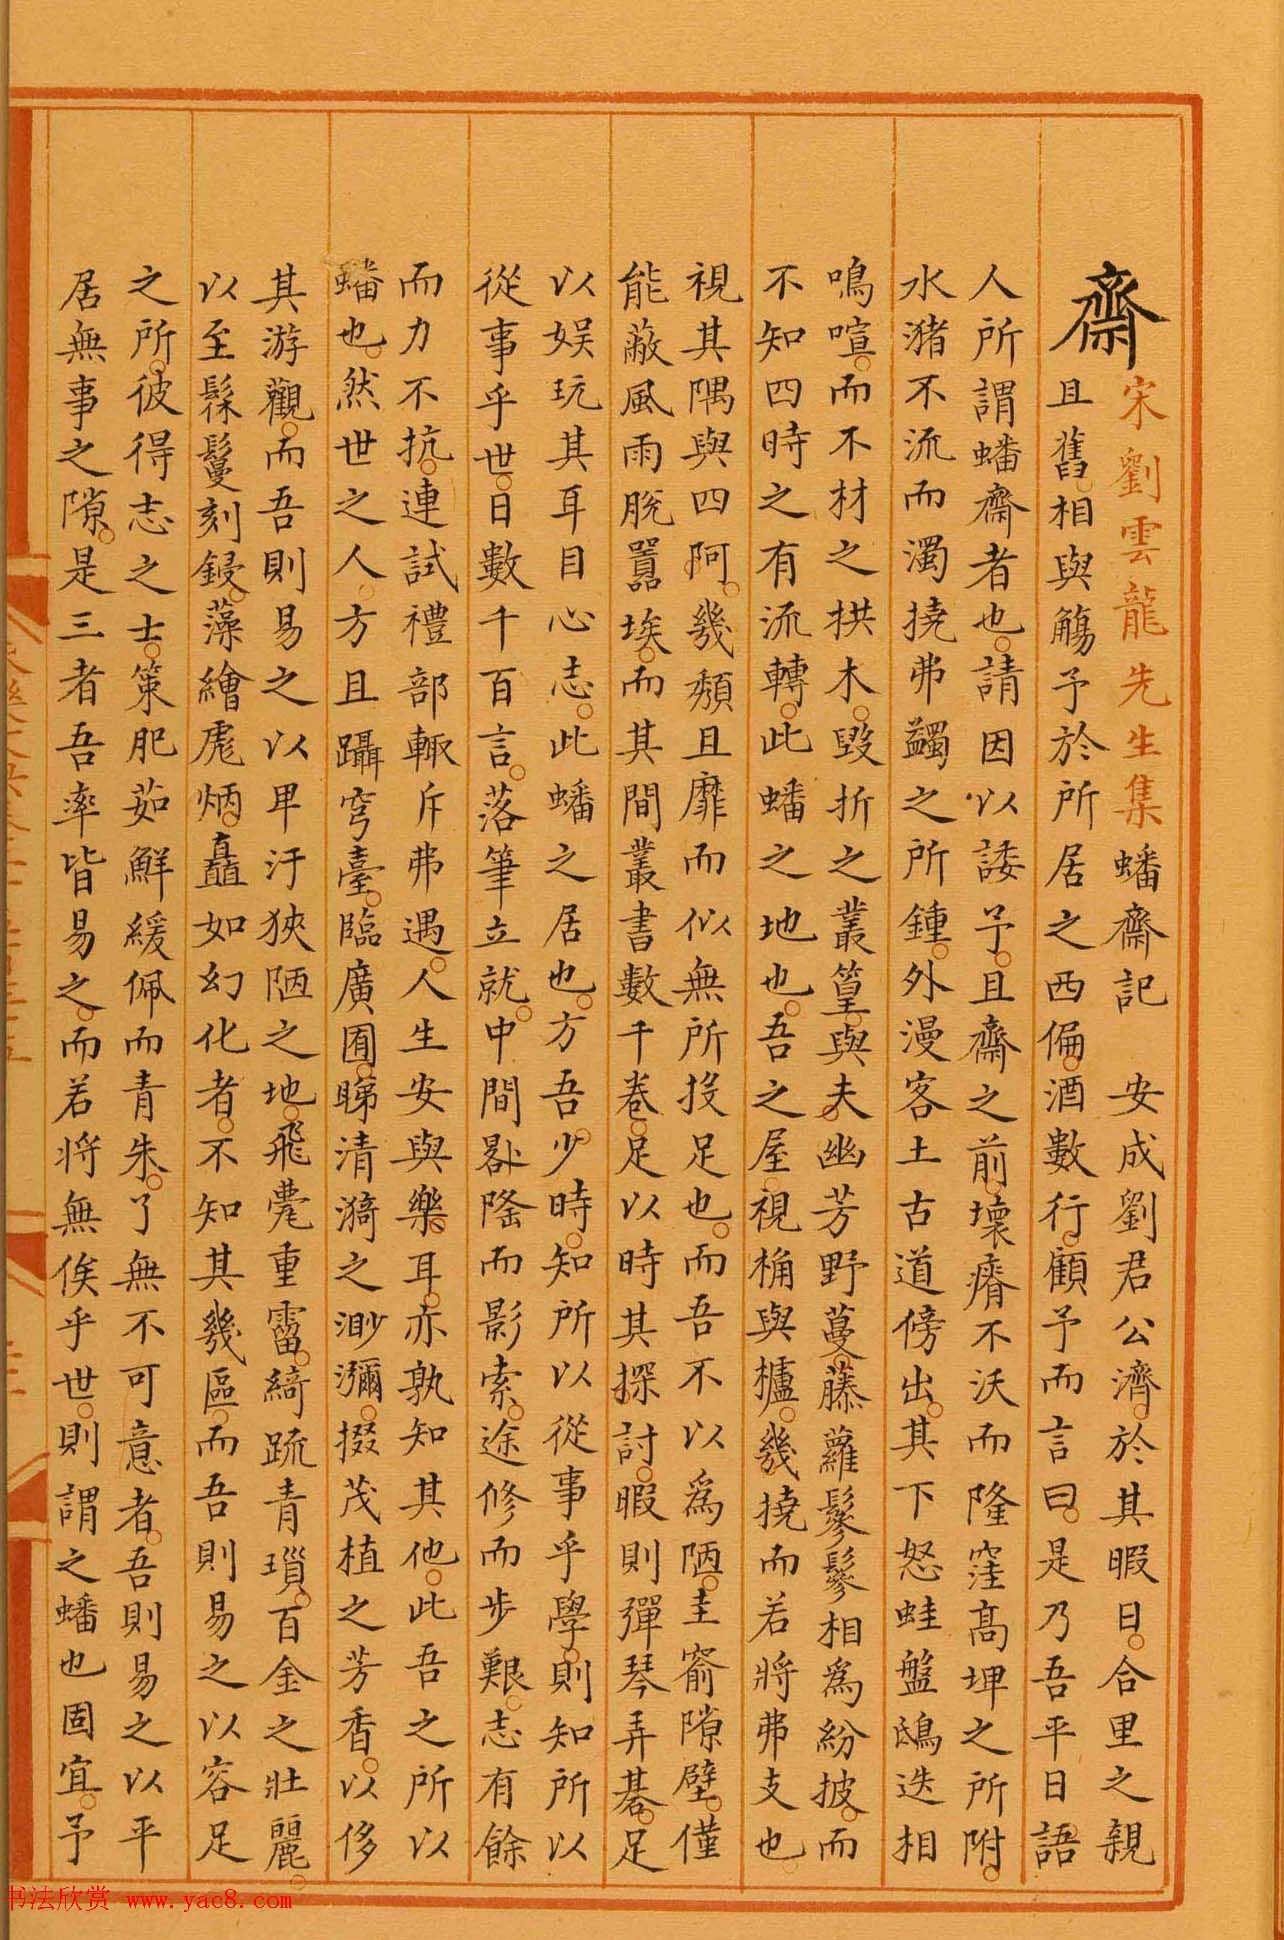 齋
宋劉雲龍先生集蟠齋記 安成劉君公濟於其暇日合里之親
且舊相與觴予於所居之西偏酒數行顧予而言曰是乃吾平日語
人所謂蟠齋者也請因以諉予且齋之前壞瘠不沃而隆窪高埤之所附
水豬不流而濁撓弗蠲之所鍾外漫客土古道傍出其下怒蛙盤鴟迭相
鳴喧而不材之拱木毀折之叢篁與夫幽芳野蔓藤蘿鬖鬖相為紛披而
不知四時之有流轉此蟠之地也吾之屋視桷與櫨幾撓而若將弗支也
視其隅與四阿幾頽且靡而似無所投足也而吾不以為陋圭窬隙壁僅
能蔽風雨脫囂埃而其間叢書數千卷足以時其探討暇則彈琴弄碁足
以娛玩其耳目心志此蟠之居也方吾少時知所以從事乎學則知所以
從事乎世日數千百言落筆立就中間畧隆而影索途修而步艱志有餘
而力不抗連試禮部輙斥弗遇人生安與樂耳亦孰知其他此吾之所以
蟠也然世之人方且躡穹臺臨廣囿睇清漪之渺瀰掇茂植之芳香以侈
其游觀而吾則易之以卑汙狹陋之地飛甍重霤綺疏青瑣百金之壯麗
以至髹鬘刻鋟藻繪彪炳矗如幻化者不知其幾區而吾則易之以容足
之所彼得志之士策肥茹鮮緩佩而青朱了無不可意者吾則易之以平
居無事之隙是三者吾率皆易之而若將無俟乎世則謂之蟠也固宜予
书法欣赏 www.yac8.com